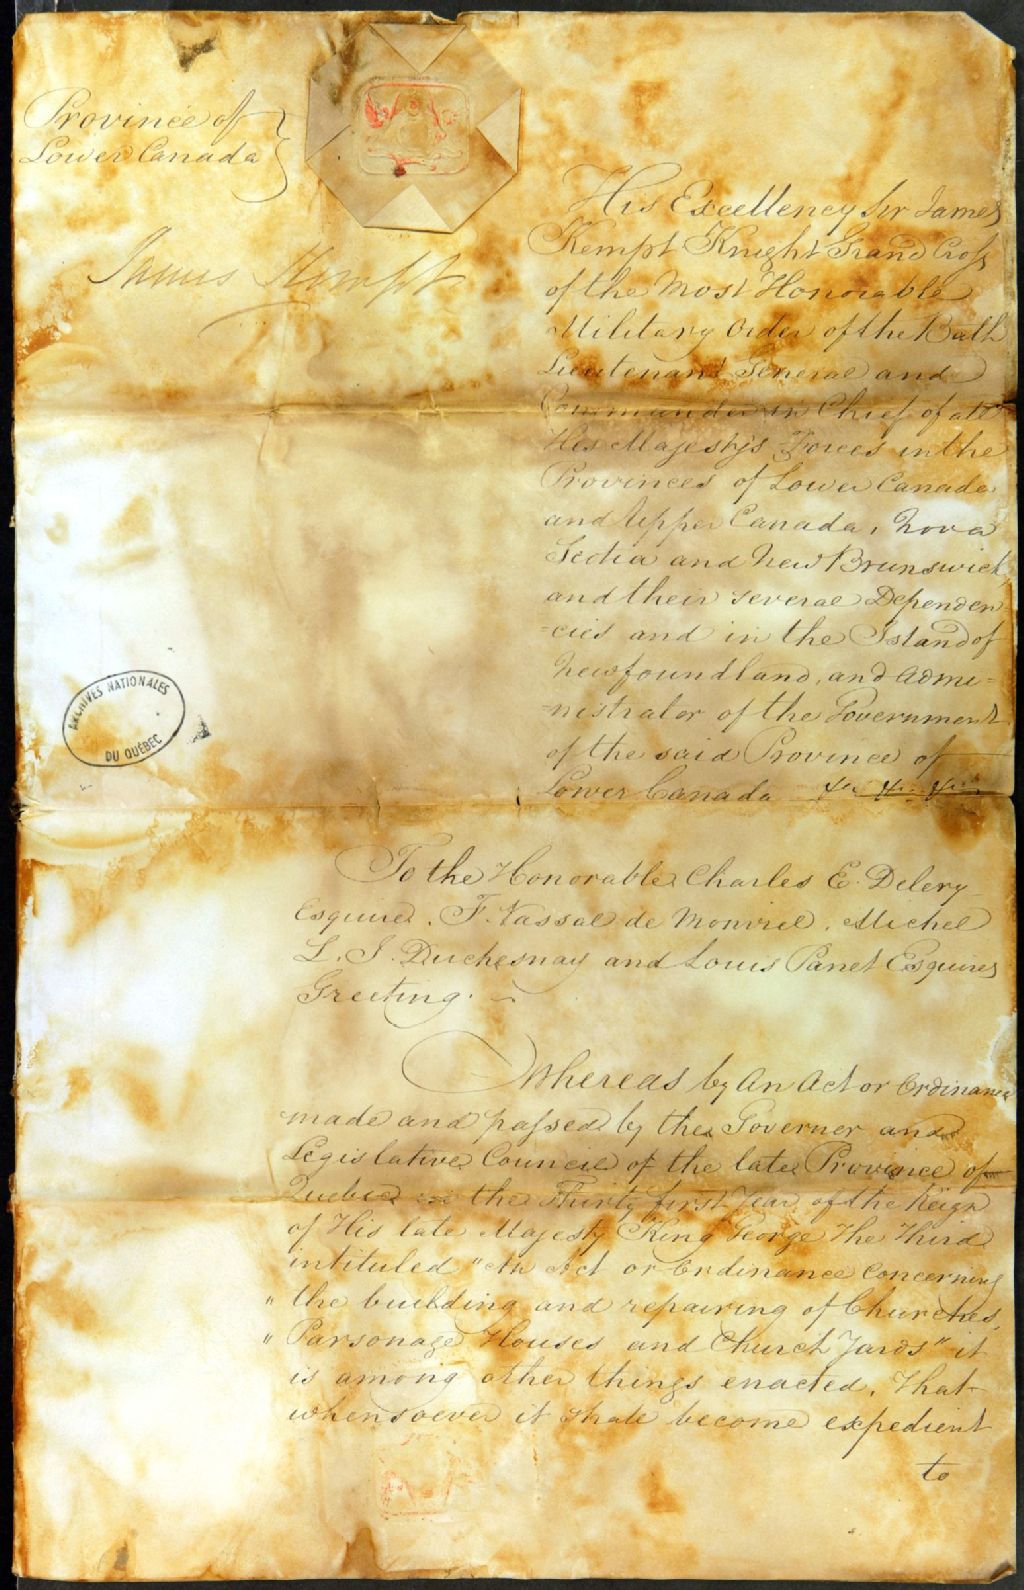 Province of
Lower Canada
James Kempt
His Excellency Sir James
Kempt Knight Grand Cross
of the Most Honorable
Military Order of the Bath
Lieutenant General and
Commander in Chief of all
His Majesty's Forces in the
Provinces of Lower Canada
and Upper Canada, Nova
Scotia and New Brunswick,
and their several Dependen
=cies and in the Island of
Newfoundland, and Admi=
=nistrator of the Government
of the said Province of
Lower Canada &c. &c. &c.
ARCHIVES NATIONALES
DU QUÉBEC
To the Honorable Charles E. Delery
Esquire, F. Vassal de Monviel, Michel
L. J. Duchesnay and Louis Panet Esquires
Greeting.
Whereas by An Act or Ordinance
made and passed by the Governor and
Legislative Council of the late Province of
Quebec in the Thirty first Year of the Reign
of His late Majesty King George the Third
intituled "An Act or Ordinance Concerning
" the building and repairing of Churches,
" Parsonage Houses and Church Yards" it
is among other things enacted, that
whensoever it shall become expedient
to